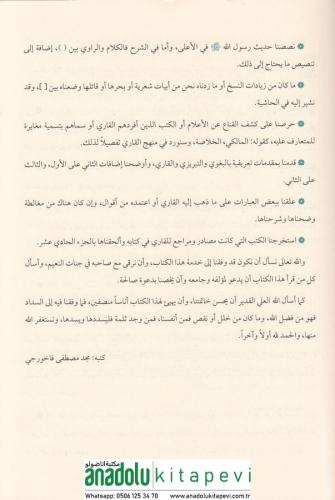 * نصصنا حديث رسول الله ﷺ في الأعلى، وأما في الشرح فالكلام والراوي بين ( )، إضافة إلى
تنصيص ما يحتاج إلى ذلك.
* ما كان من زيادات النسخ أو ما زدناه نحن من أبيات شعرية أو بحرها أو قائلها وضعناه بين [ ]، وقد
نشير إليه في الحاشية.
* حرصنا على كشف القناع عن الأعلام أو الكتب الذين أفردهم القاري أو سماهم بتسمية مغايرة
للمتعارف عليه، كقوله: المالكي، الخلاصة، وسنورد في منهج القاري تفصيلاً لذلك.
* قدمنا بمقدمات تعريفية بالبغوي والتبريزي والقاري، وأوضحنا إضافات الثاني على الأول، والثالث
على الثاني.
* علقنا ببعض العبارات على ما ذهب إليه القاري أو اعتمده من أقوال، وإن كان هناك من مغالطة
وضحناها وشرحناها.
* استخرجنا الكتب التي كانت مصادر ومراجع للقاري في كتابه وألحقناها بالجزء الحادي عشر.
والله تعالى نسأل أن نكون قد وفقنا إلى خدمة هذا الكتاب، وأن نرقى مع صاحبه في جنات النعيم، وأسأل
كل من قرأ هذا الكتاب أن يدعو لمؤلفه وجامعه وأن يخصنا بدعوة صالحة.
كما أسأل الله العلي القدير أن يحسن خاتمتنا، وأن يهيئ لهذا الكتاب أناساً منصفين، فما وفقنا فيه إلى السداد
فهو من فضل الله، وما كان من خلل أو نقص فمن أنفسنا، فمن وجد ثلمة فليسددها ويسدها، ونستغفر الله
منها، والحمد لله أولاً وآخراً.
كتبه: محمد مصطفى فاخورجي
مكتبة اناضولو
anadolu kitapevi
Whatsapp: 0506 125 34 70 www.anadolukitapevi.com.tr